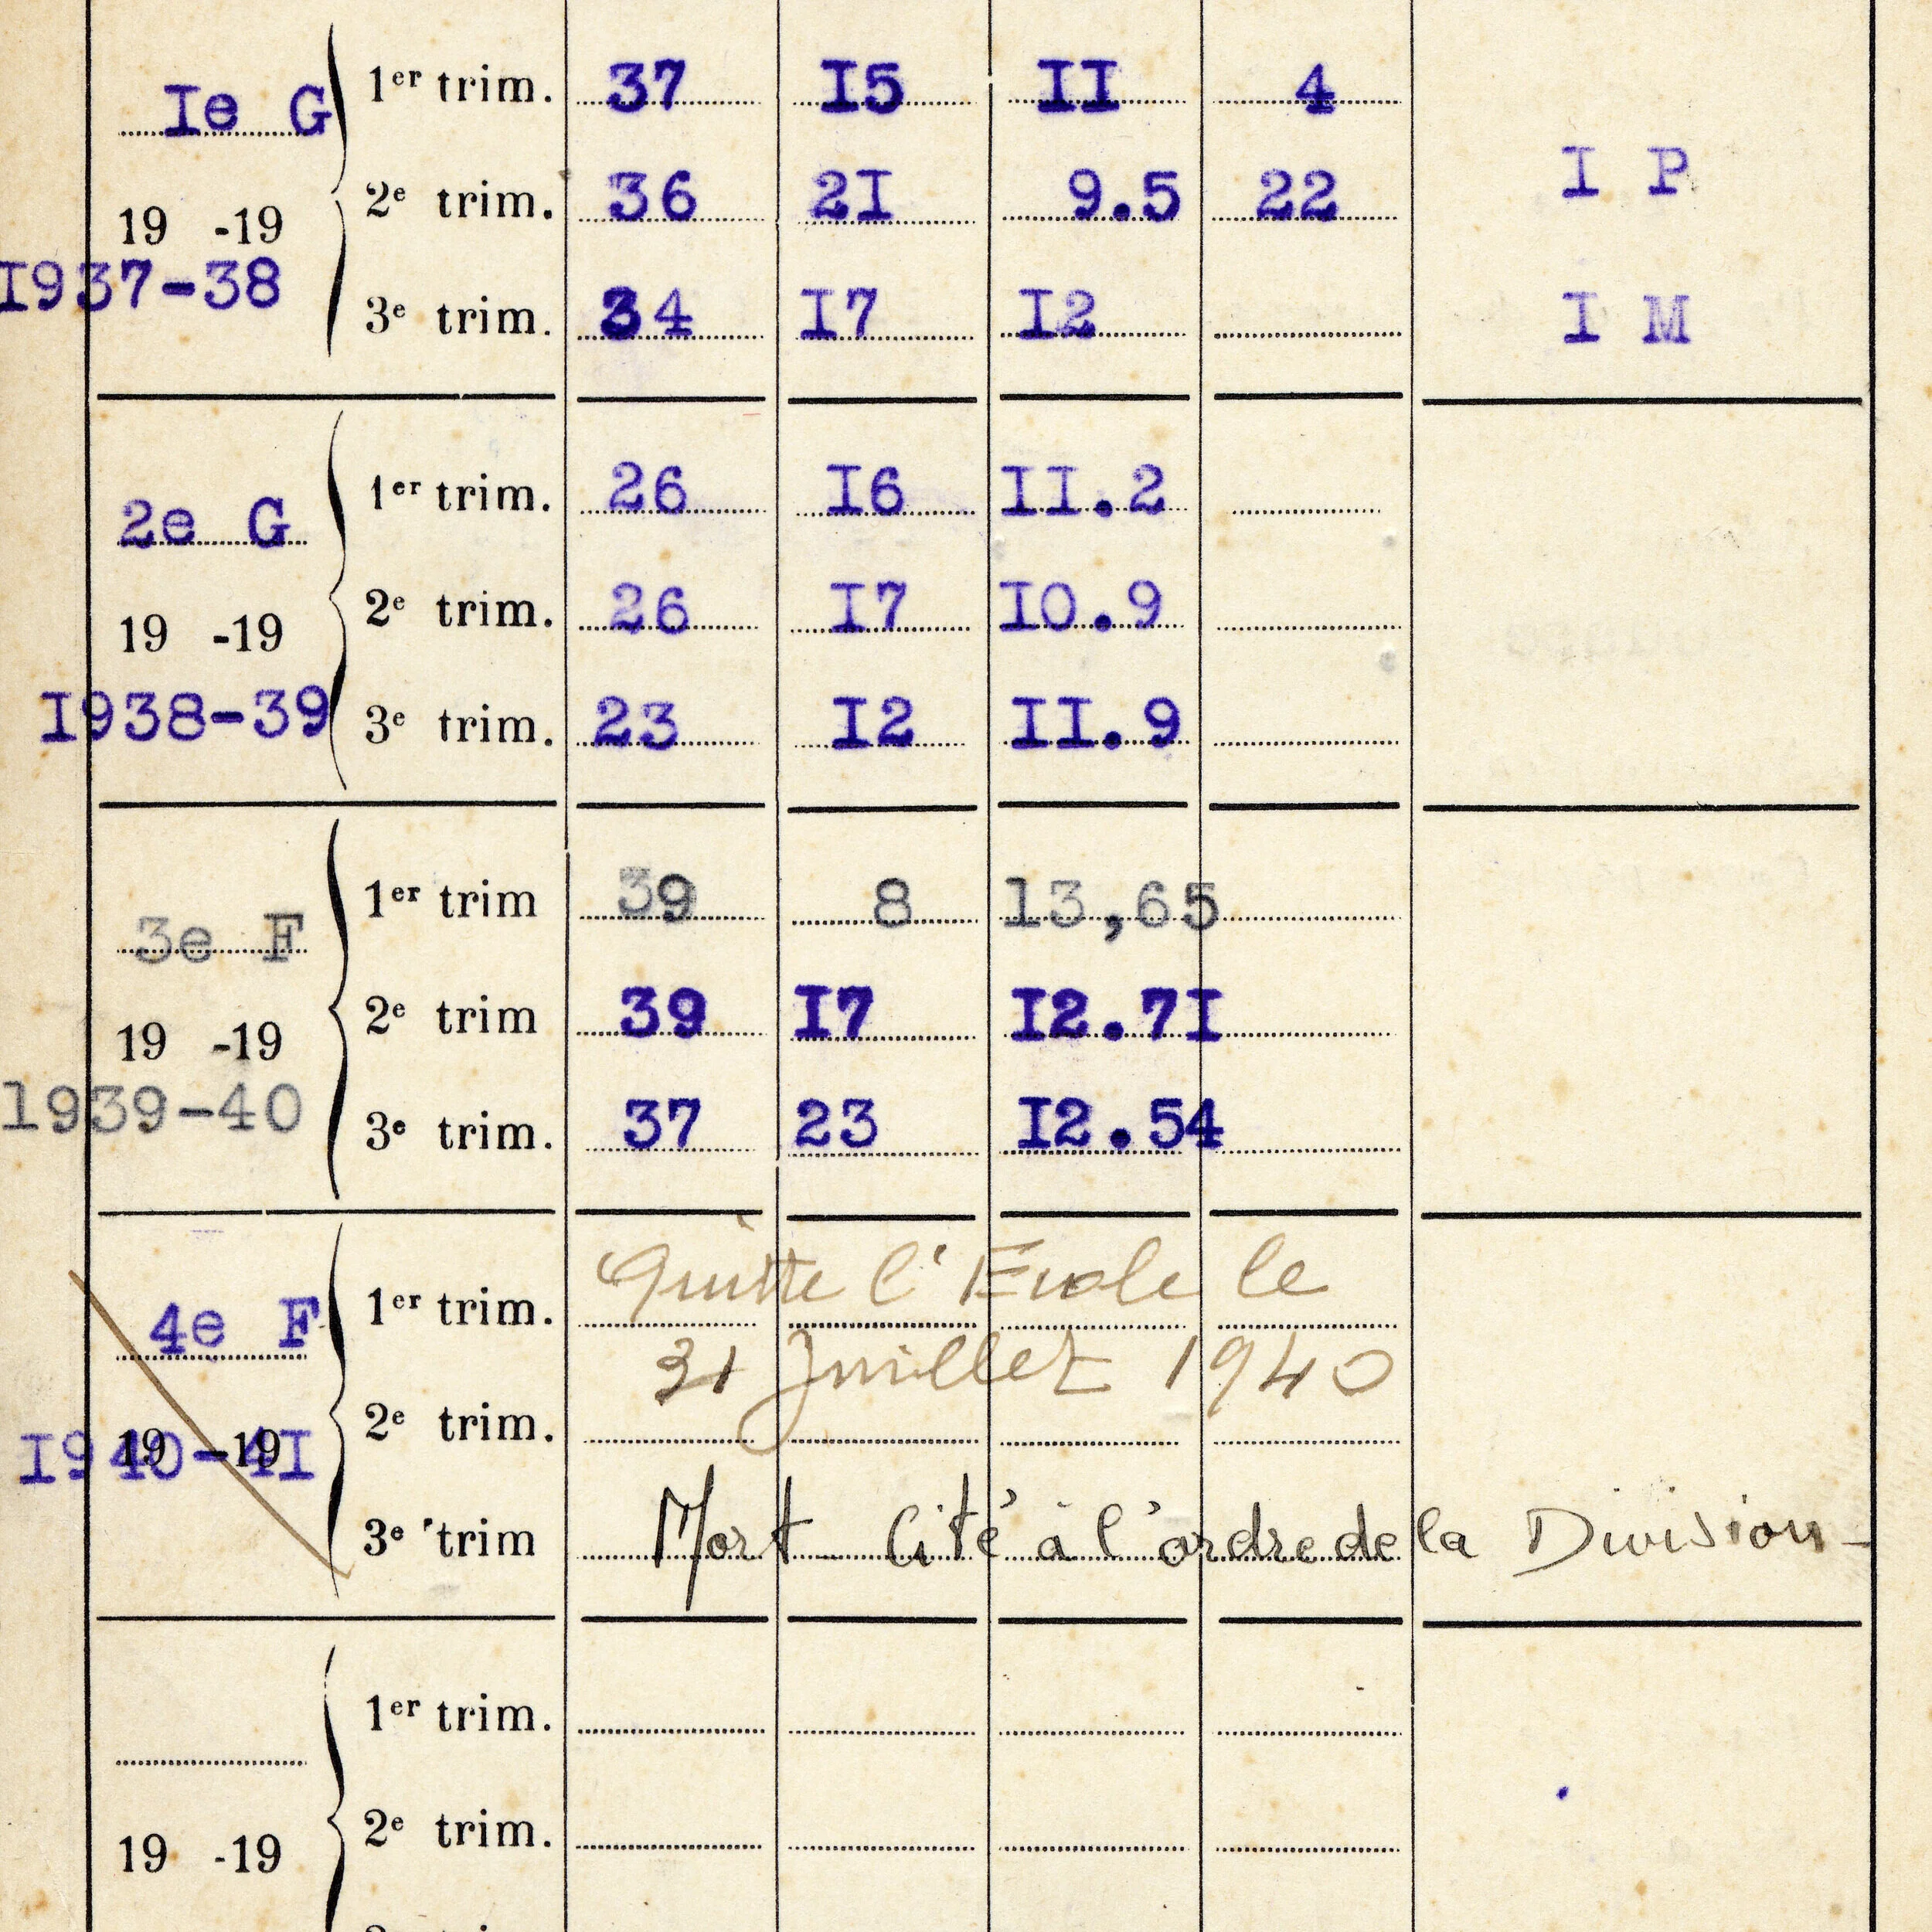 Ie G 1er trim. 37 I5 II 4
2e trim. 36 2I 9.5 22 I P
19 -19
I937-38 3e trim. 34 I7 I2 I M
2e G 1er trim. 26 I6 II.2
19 -19 2e trim. 26 I7 I0.9
I938-39 3e trim. 23 I2 II.9
3e F 1er trim 39 8 13,65
19 -19 2e trim 39 I7 I2.7I
1939-40 3e trim. 37 23 I2.54
Quitte l'Ecole le
4e F 1er trim.
31 Juillet 1940
19 -19 2e trim.
I940-4I
3e trim Mort - Cité à l'ordre de la Division -
1er trim.
19 -19 2e trim.